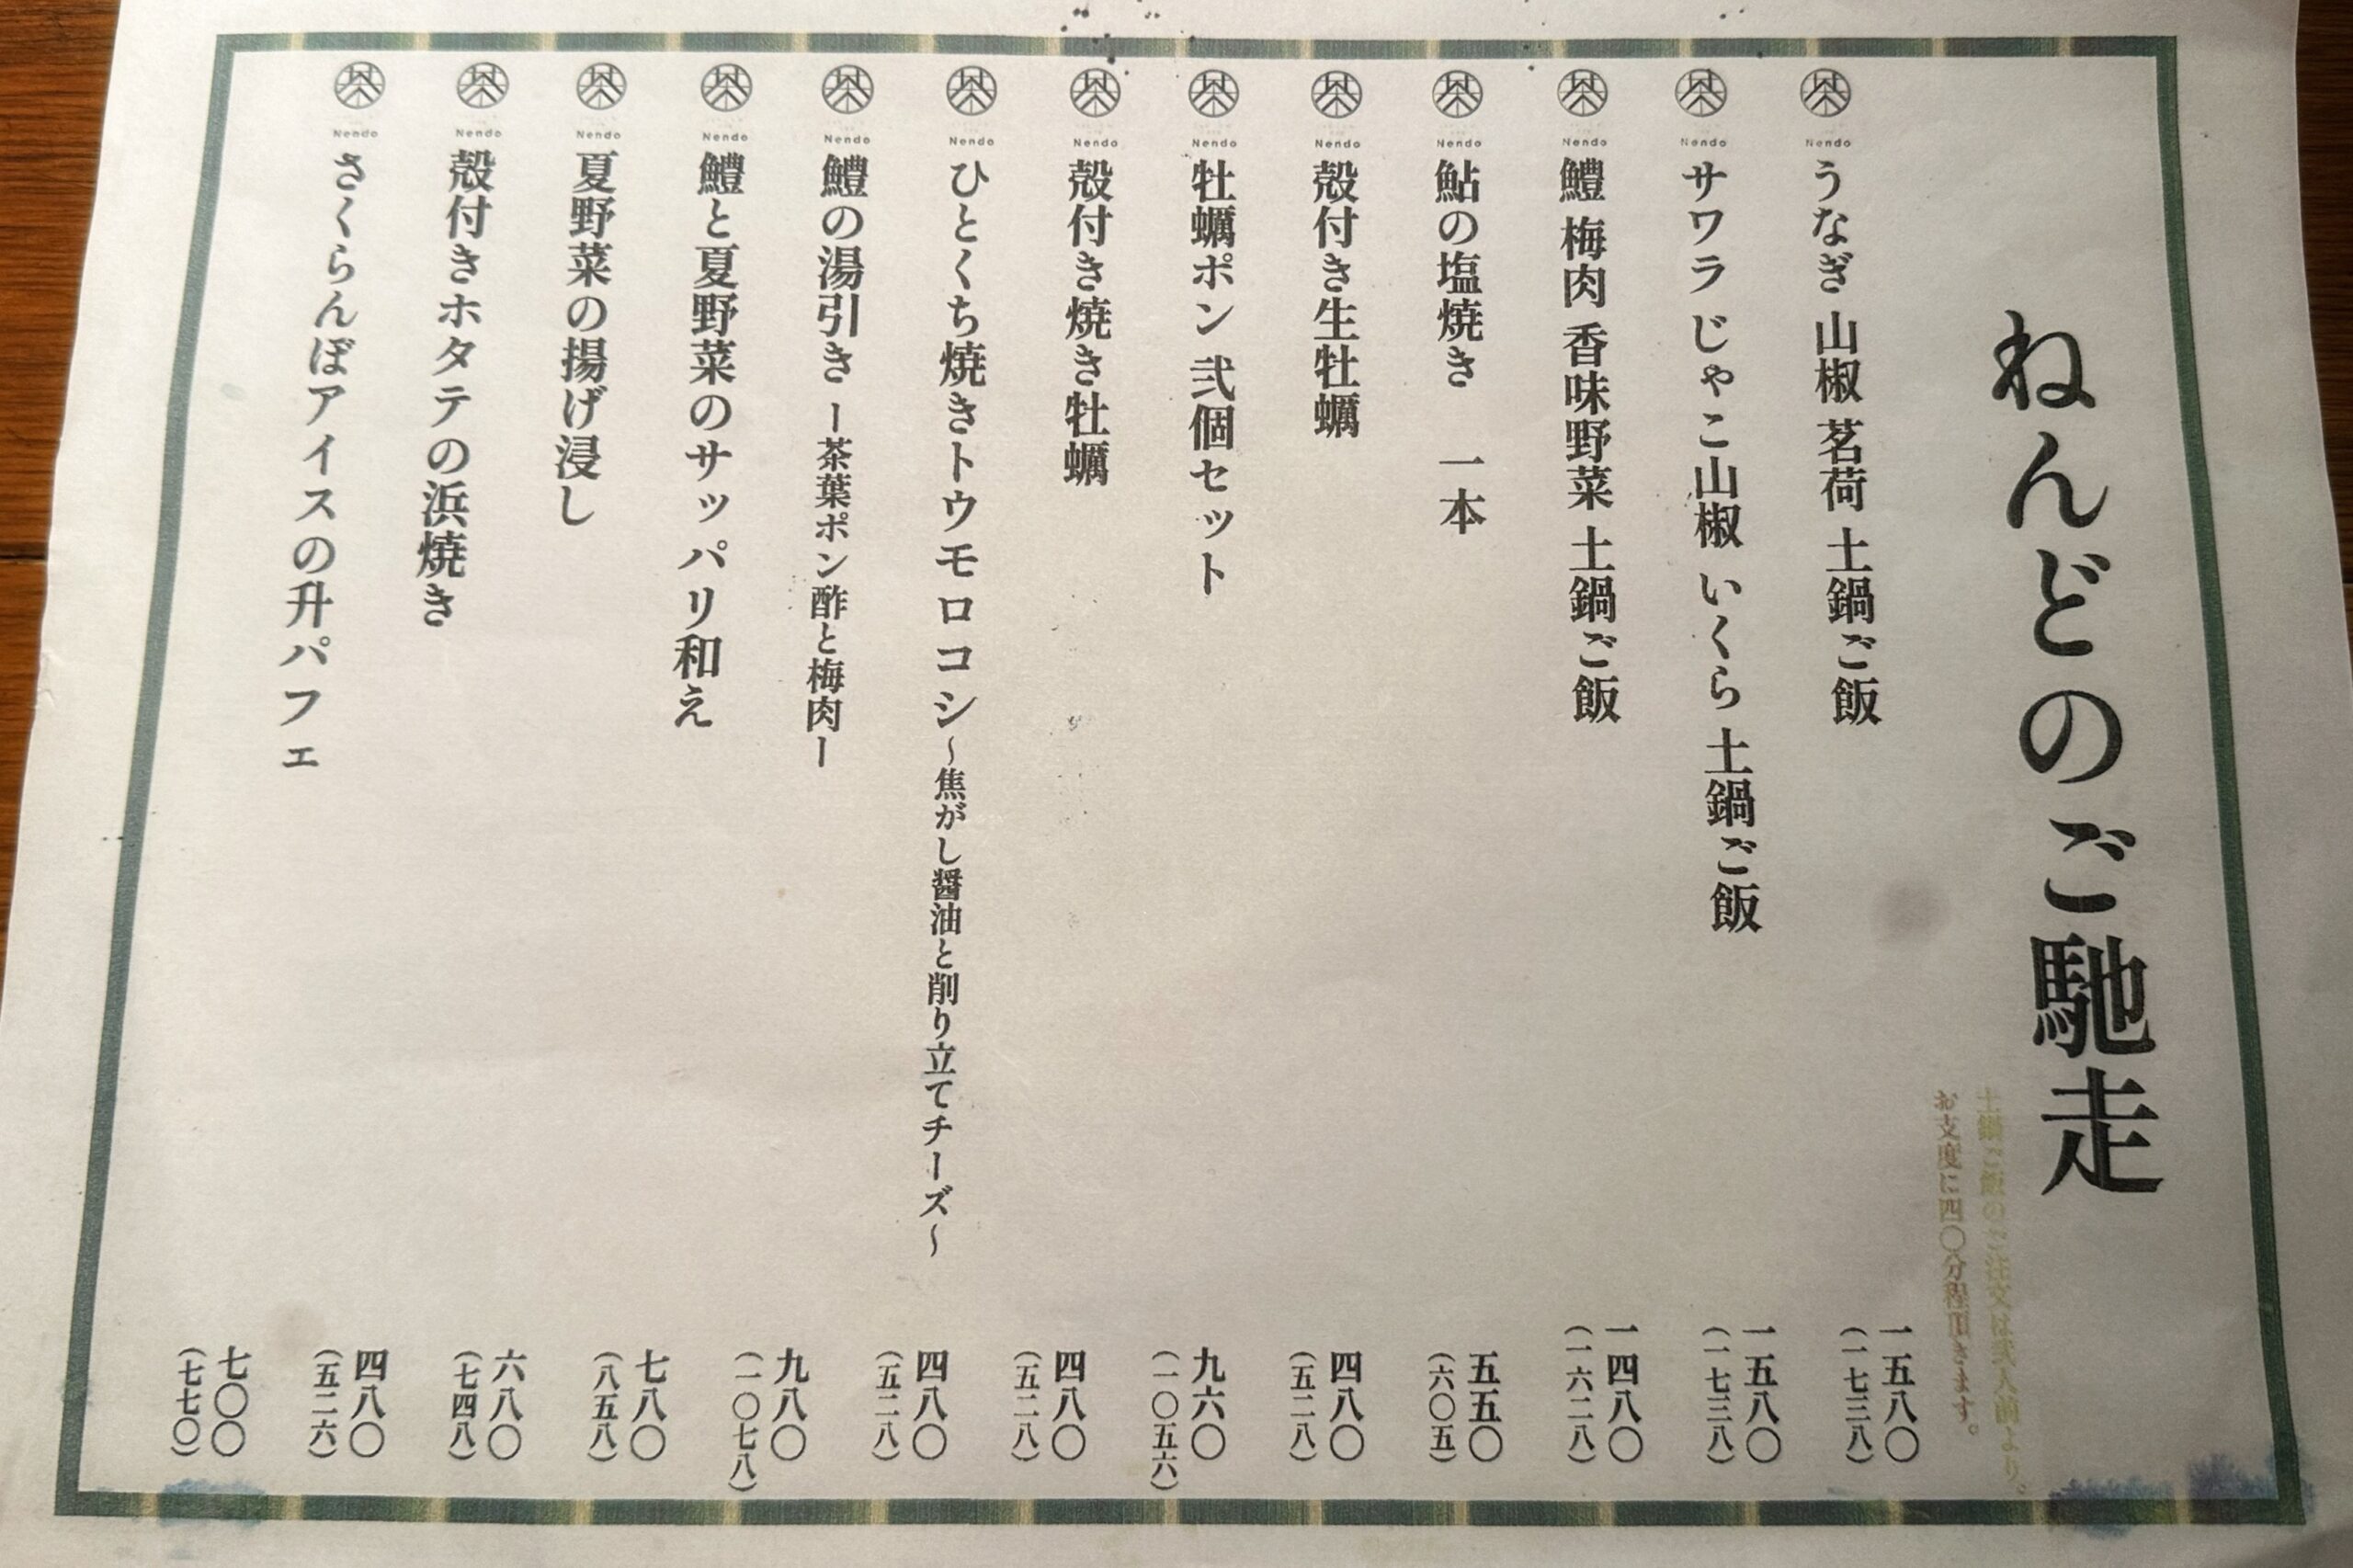 ねんどのご馳走
土鍋ご飯のご注文は弐人前より。
お支度に四〇分程頂きます。
Nendo
うなぎ 山椒 茗荷 土鍋ご飯
一五八〇
（一七三八）
Nendo
サワラ じゃこ山椒 いくら 土鍋ご飯
一五八〇
（一七三八）
Nendo
鱧 梅肉 香味野菜 土鍋ご飯
一四八〇
（一六二八）
Nendo
鮎の塩焼き 一本
五五〇
（六〇五）
Nendo
殻付き生牡蠣
四八〇
（五二八）
Nendo
牡蠣ポン 弐個セット
九六〇
（一〇五六）
Nendo
殻付き焼き牡蠣
四八〇
（五二八）
Nendo
ひとくち焼きトウモロコシ～焦がし醤油と削り立てチーズ～
四八〇
（五二八）
Nendo
鱧の湯引き ー茶葉ポン酢と梅肉ー
九八〇
（一〇七八）
Nendo
鱧と夏野菜のサッパリ和え
七八〇
（八五八）
Nendo
夏野菜の揚げ浸し
六八〇
（七四八）
Nendo
殻付きホタテの浜焼き
四八〇
（五二六）
Nendo
さくらんぼアイスの升パフェ
七〇〇
（七七〇）